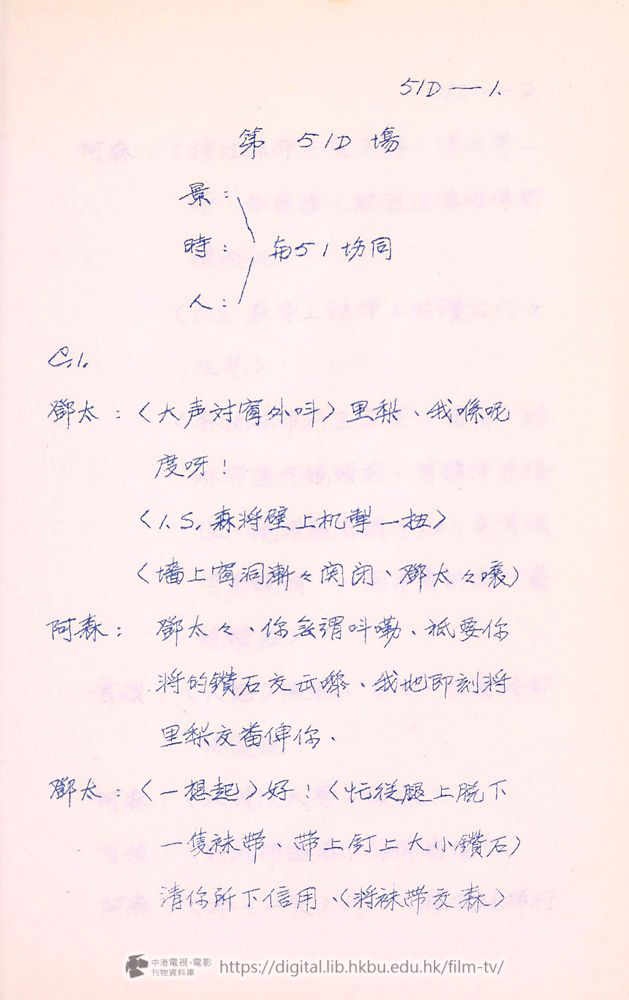 51D — 1.
第 51D 場
景：
時： 与51场同
人：
C.1.
鄧太：（大声对窗外呌）里梨、我喺呢
度呀！
（I.S. 森将壁上机掣一扭）
（墙上窗洞漸々関闭、鄧太々嚷）
阿森： 鄧太々、你無謂呌嘞、祗要你
将的鑽石交出嚟、我地即刻将
里梨交番俾你、
鄧太：（一想起）好！（忙從腿上脱下
一隻袜带、带上釘上大小鑽石）
請你所下信用、（将袜带交森）
中港電視·電影
刊物資料庫
https://digital.lib.hkbu.edu.hk/film-tv/